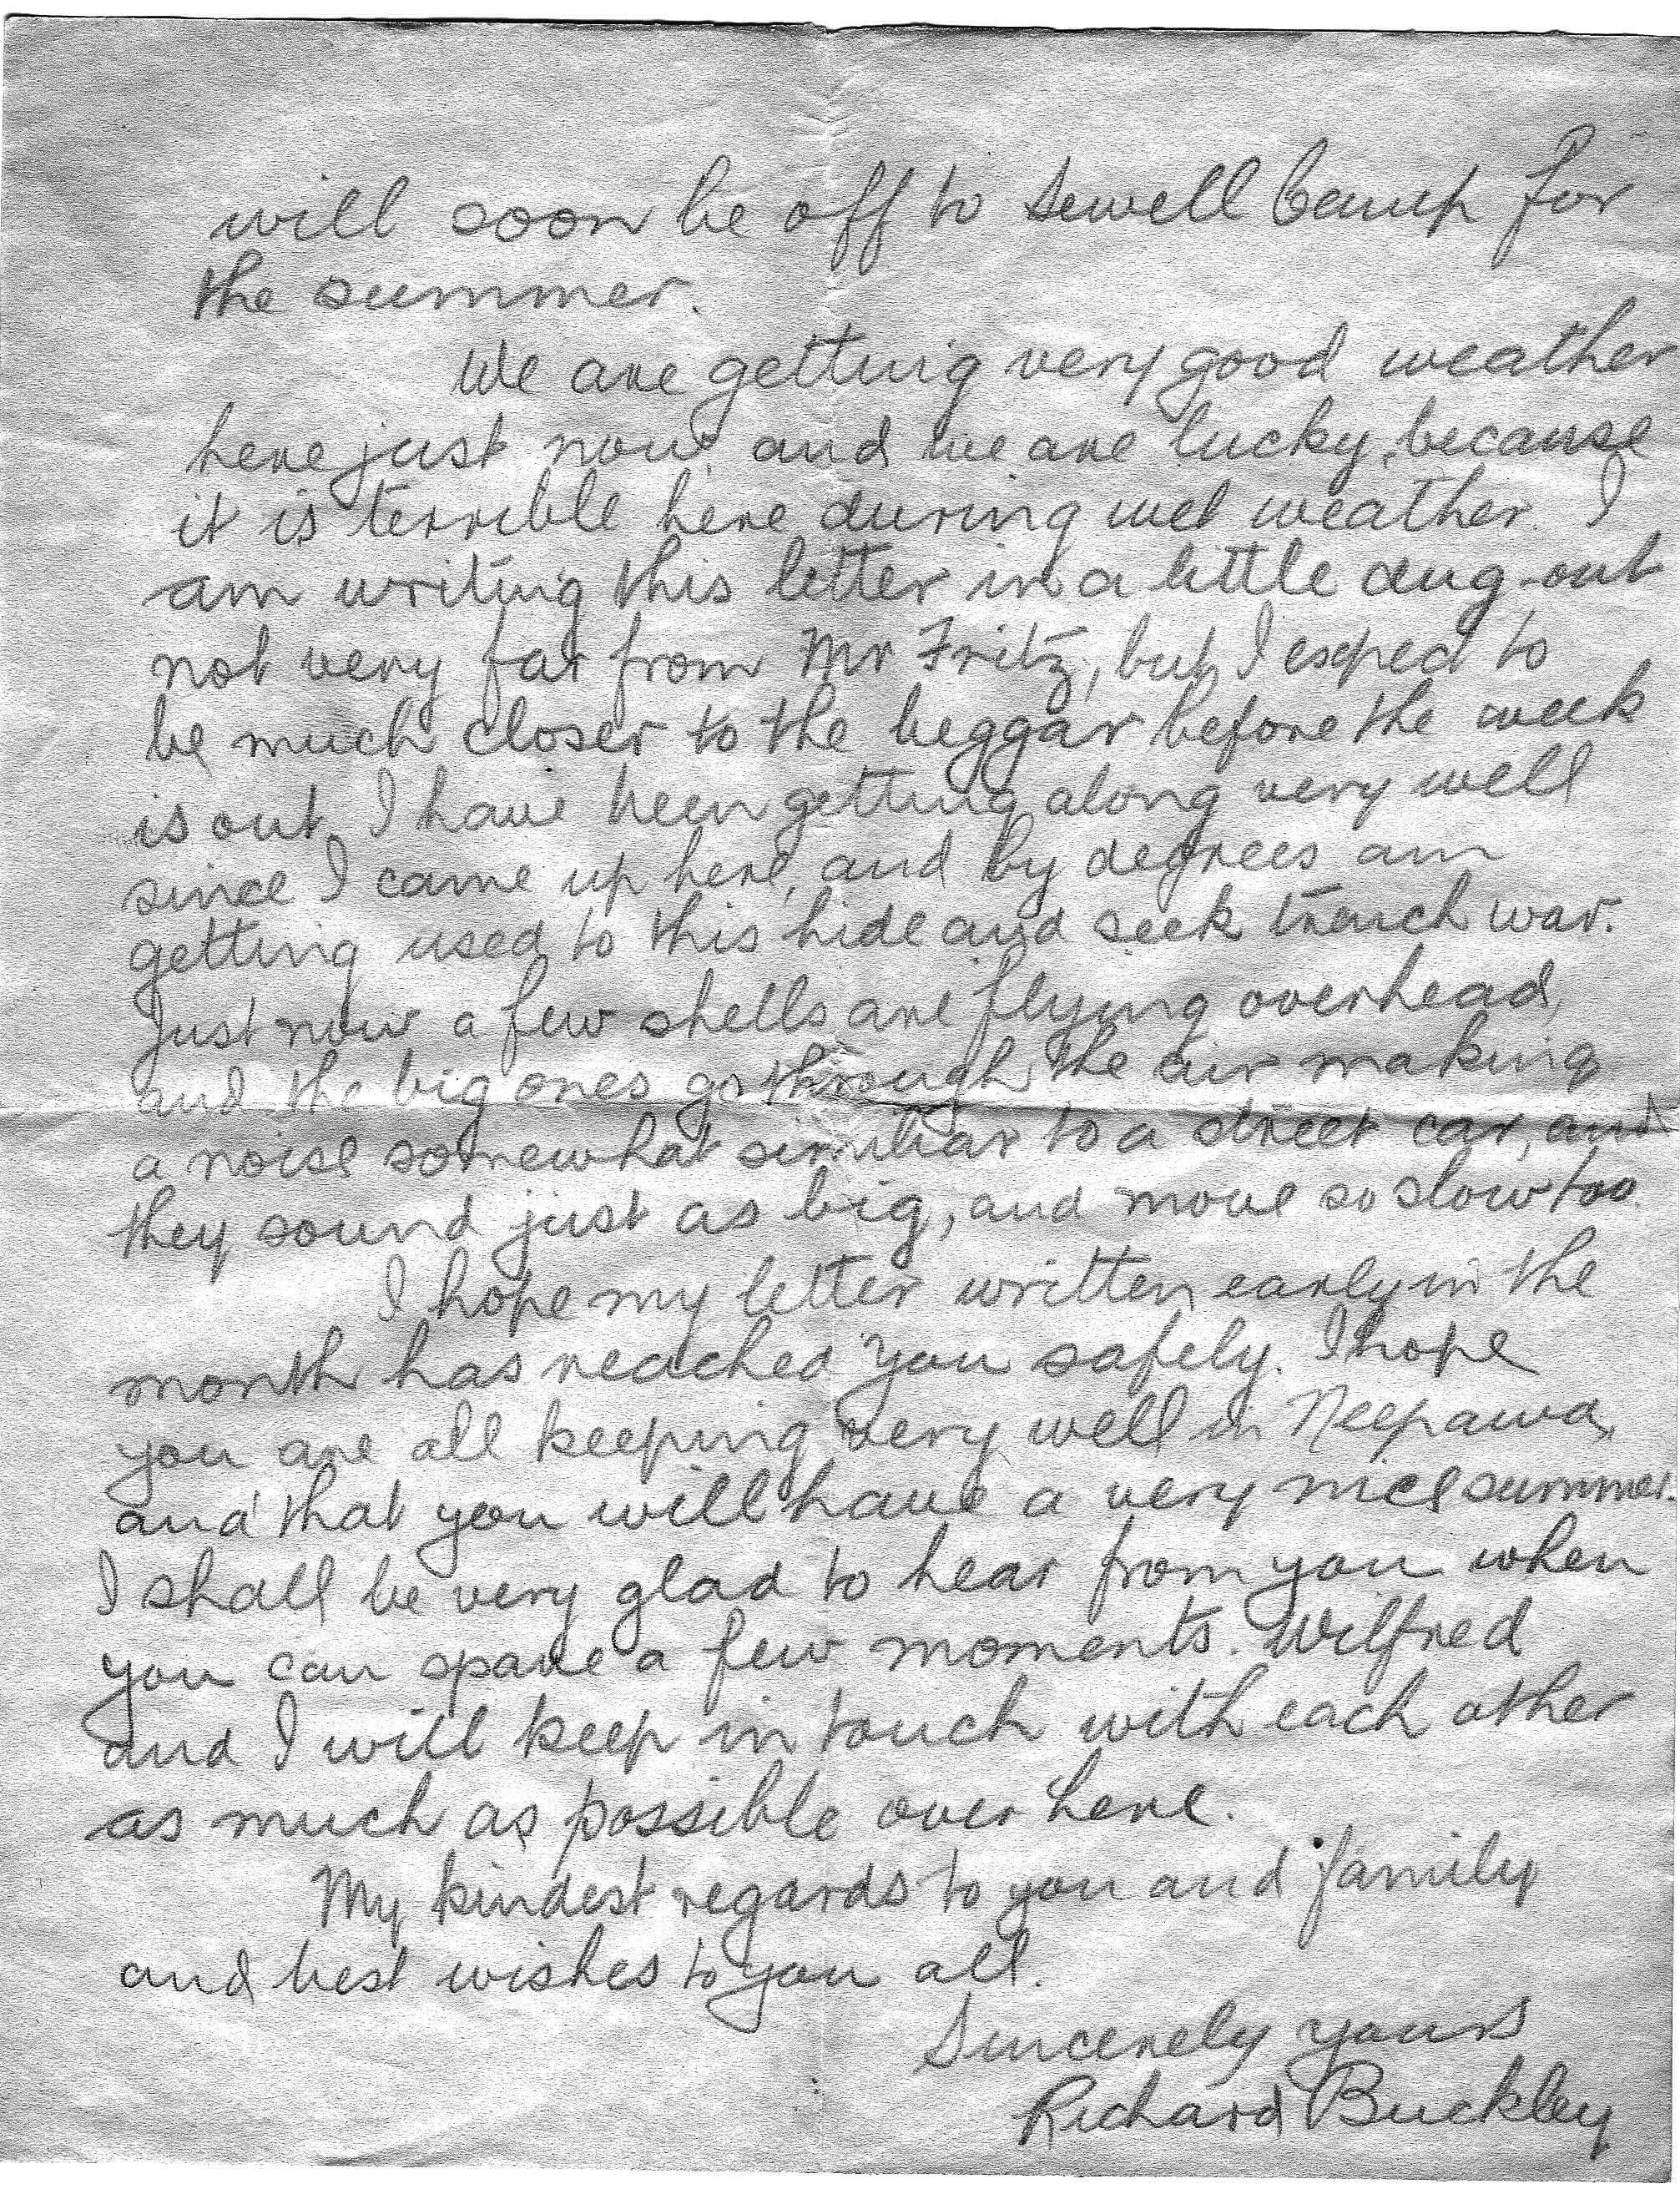 will soon be off to Sewell Camp for
the summer.
We are getting very good weather
here just now, and we are lucky, because
it is terrible here during wet weather. I
am writing this letter in a little dug-out
not very far from Mr Fritz, but I expect to
be much closer to the beggar before the week
is out. I have been getting along very well
since I came up here, and by degrees am
getting used to this hide and seek trench war.
Just now a few shells are flying overhead,
and the big ones go through the air making
a noise somewhat similiar to a street car, and
they sound just as big, and move so slow too.
I hope my letter written early in the
month has reached you safely. I hope
you are all keeping very well in Neepawa,
and that you will have a very nice summer.
I shall be very glad to hear from you when
you can spare a few moments. Wilfred
and I will keep in touch with each other
as much as possible over here.
My kindest regards to you and family
and best wishes to you all.
Sincerely yours
Richard Buckley